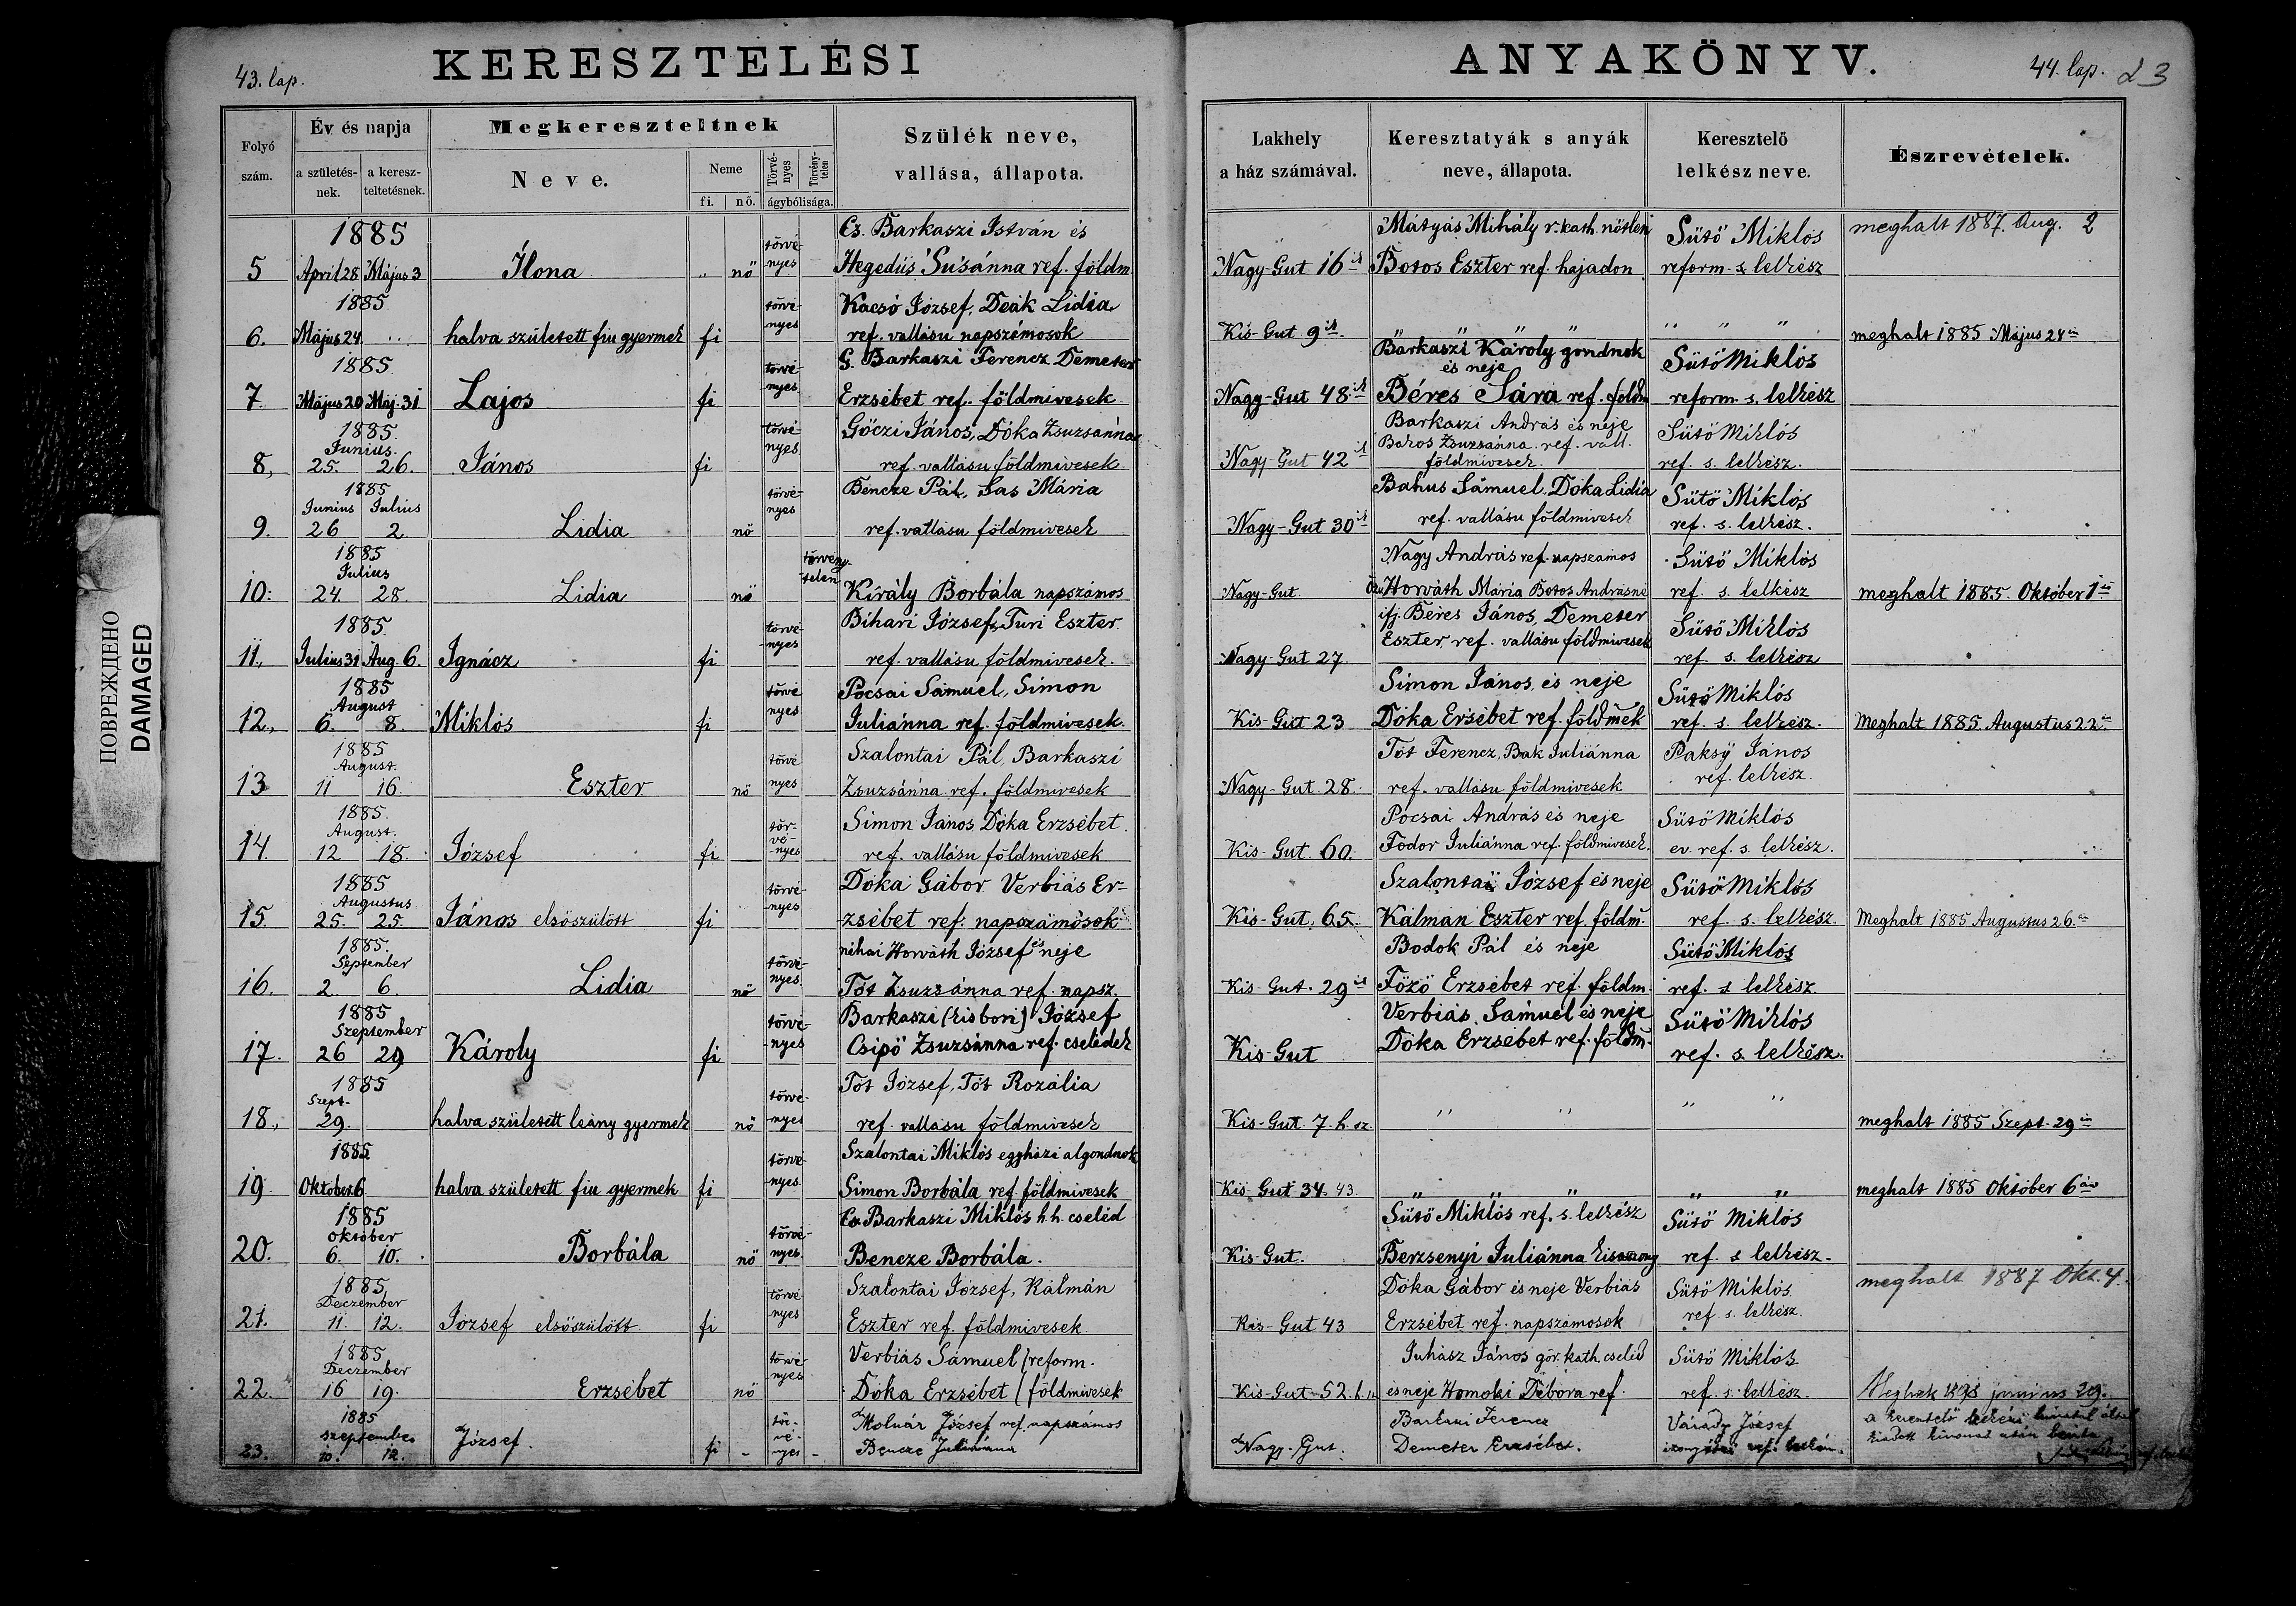 43. lap.
KERESZTELÉSI
ANYAKÖNYV.
44. lap.
23
Folyó szám.
Év és napja
a születés-nek.
a keresz-teltetésnek.
Megkereszteltnek
Neve.
Neme
fi.
nő.
Törvé-nyes
Törvény-telen
ágybólisága.
Szülék neve,
vallása, állapota.
Lakhely
a ház számával.
Keresztatyák s anyák
neve, állapota.
Keresztelő
lelkész neve.
Észrevételek.
1885 törvé- Cs. Barkaszi István és Mátyás Mihály r. kath. nőtlen Sütő Miklós meghalt 1887. Aug. 2
5 April 28 Május 3 Ilona " nő nyes Hegedüs Susánna ref. földm. Nagy-Gut 16 ik Botos Eszter ref. hajadon reform. s. lelkész
1885 törvé- Kacsó József, Deák Lidia
6. Május 24. halva született fiu gyermek fi nyes ref. vallásu napszámosok Kis-Gut 9 ik. " " " " " " " meghalt 1885 Május 24 én
1885 törvé- G. Barkaszi Ferencz Demeter Barkaszi Károly gondnok és neje Sütő Miklós
7. Május 20 Máj. 31 Lajos fi nyes Erzsébet ref. földmivesek Nagy-Gut 48 ik Béres Sára ref. földm reform. s. lelkész
1885. Junius. törvé- Góczi János, Dóka Zsuzsánna Barkaszi András és neje Sütő Miklós
Zsuzsánna ref. vall.
8, 25. 26. János fi nyes ref. vallásu földmivesek Nagy-Gut 42 ik földmivesek. ref. s. lelkész.
1885 törvé- Bencze Pál, Sas Mária Bakus Sámuel, Dóka Lidia Sütő Miklós
Junius Julius nyes
9. 26 2. Lidia nő ref. vallásu földmivesek Nagy-Gut 30 ik ref. vallásu földmivesek ref. s. lelkész.
1885 Julius törvény- Nagy András ref. napszámos Sütő Miklós
10. 24. 28. Lidia nő telen Király Borbála napszámos Nagy-Gut Horváth Mária Botos Andrásné ref. s. lelkész meghalt 1885. Október 1 én
1885. törvé- Bihari József, Turi Eszter ifj. Béres János, Demeter Sütő Miklós
Eszter, ref. vallásu földmivesek
11., Julius 31 Aug. 6. Ignácz fi nyes ref. vallásu földmivesek. Nagy-Gut 27. ref. s. lelkész
1885 August törvé Pocsai Sámuel, Simon Simon János, és neje Sütő Miklós
12., 6. 8. Miklós fi nyes Juliánna ref. földmivesek. Kis-Gut 23 Dóka Ersébet ref. földmek ref. s. lelkész. Meghalt 1885. Augustus 22 én
1885 August. törvé Szalontai Pál, Barkaszi Tót Ferencz, Bak Juliánna Paksy János
13 11 16. Eszter nő nyes Zsuzsánna ref. földmivesek Nagy-Gut. 28. ref. vallásu földmivesek ref. lelkész.
1885. August. tör- Simon János Dóka Erzsébet. Pocsai András és neje Sütő Miklós
14. 12 18. József fi vé-nyes ref. vallásu földmivesek Kis-Gut. 60. Fodor Juliánna ref. földmivesek. ev. ref. s. lelkész.
1885 Augustus törvé- Dóka Gábor Verbiás Er- Szalontai József és neje Sütő Miklós
15. 25. 25. János elsőszülött fi nyes zsébet ref. napszámosok Kis-Gut, 65. Kálmán Eszter ref. földm. ref. s. lelkész. Meghalt 1885 Augustus 26. án
1885. September törvé- néhai Horváth József és neje Bodok Pál és neje Sütő Miklós
16. 2. 6. Lidia nő nyes. Tót Zsuzsánna ref. napsz. Kis-Gut. 29 ik Főző Erzsébet ref. földm. ref. s lelkész
1885 Szeptember törvé- Barkaszi (kisbori) József Verbiás Sámuel és neje Sütő Miklós
17. 26 29 Károly fi nyes Csipő Zsuzsánna ref. cselédek Kis-Gut Dóka Erzsébet ref. földm. ref. s. lelkész.
1885 Szept. törvé- Tót József, Tót Rozália
18., 29. halva született leány gyermek nő nyes ref. vallásu földmivesek Kis-Gut. 7. h. sz. " " " " meghalt 1885 Szept. 29 én
1885 törvé- Szalontai Miklós egyházi algondnok
19. Oktober 6 halva született fiu gyermek fi nyes. Simon Borbála ref. földmivesek Kis-Gut 34. 43. " " " " " meghalt 1885 Október 6 án
1885 október törvé- Cs. Barkaszi Miklós h.h. cseléd Sütő Miklós ref. s. lelkész Sütő Miklós
20. 6. 10. Borbála nő nyes. Bencze Borbála. Kis-Gut. Berzsenyi Juliánna kisasszony ref. s lelkész.
1885 Deczember törvé Szalontai József, Kálmán Dóka Gábor és neje Verbiás Sütő Miklós. meghalt 1887 Okt. 4.
21. 11. 12. József elsőszülött fi nyes Eszter ref. földmivesek Kis-Gut 43 Erzsébet ref. napszámosok ref. s. lelkész.
1885 Deczember törvé- Verbiás Sámuel (reform. Juhász János gör. kath. cseléd Sütő Miklós.
22. 16 19. Erzsébet nő nyes Dóka Erzsébet (földmivesek Kis-Gut 52. h. és neje Homoki Débora ref. ref. s. lelkész. junius 29.
1885 szeptember tör- Molnár József ref. napszámos Barkaszi Ferencz Várady József a keresztelő lelkészi hivatal által
23. 10. 12. József. fi - vé-nyes - Bencze Juliánna Nagy-Gut. Demeter Erzsébet. ref. lelkész. kiadott kivonat után
ПОВРЕЖДЕНО
DAMAGED